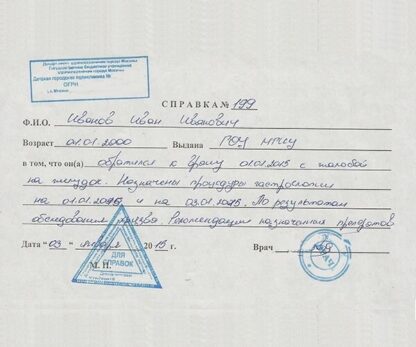 Департамент здравоохранения города Москвы
Государственное бюджетное учреждение
здравоохранения города Москвы
Детская городская поликлиника №
ОГРН
г. Москва
СПРАВКА № 199
Ф.И.О. Иванов Иван Иванович
Возраст 01.01.2000 Выдана РОУ МРСУ
в том, что он(а) обратился к врачу 01.01.2015 с жалобой
на желудок. Назначены процедуры гастроскопии
на 01.01.2015 и на 03.01.2015. По результатам
обследования язва. Рекомендации назначения препаратов
Дата "03" января 2015 г. Врач
М.П.
ДЛЯ
СПРАВОК
ВРАЧ